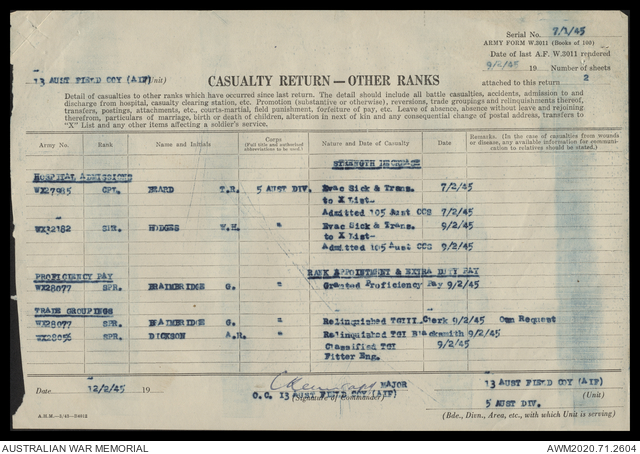 Serial No. 7/2/45
ARMY FORM W.3011 (Books of 100)
Date of last A.F. W.3011 rendered
9/2/45 19 Number of sheets
attached to this return 2
13 AUST FIELD COY (AIF) (Unit)
CASUALTY RETURN—OTHER RANKS
Detail of casualties to other ranks which have occurred since last return. The detail should include all battle casualties, accidents, admission to and
discharge from hospital, casualty clearing station, etc. Promotion (substantive or otherwise), reversions, trade groupings and relinquishments thereof,
transfers, postings, attachments, etc., courts-martial, field punishment, forfeiture of pay, etc. Leave of absence, absence without leave and rejoining
therefrom, particulars of marriage, birth or death of children, alteration in next of kin and any consequential change of postal address, transfers to
"X" List and any other items affecting a soldier's service.
Army No. Rank Name and Initials Corps (Full title and authorised abbreviations to be used.) Nature and Date of Casualty Date Remarks. (In the case of casualties from wounds or disease, any available information for communication to relatives should be stated.)
STRENGTH DECREASE
HOSPITAL ADMISSIONS
WX27985 CPL. BEARD T.R. 5 AUST DIV. Evac Sick & Trans. 7/2/45
to X List-
Admitted 105 Aust CCS 7/2/45
WX32182 SPR. HODGES W.H. " Evac Sick & Trans. 9/2/45
to X List-
Admitted 105 Aust CCS 9/2/45
RANK APPOINTMENT & EXTRA DUTY PAY
PROFICIENCY PAY
WX28077 SPR. BRAIMBRIDGE G. " Granted Proficiency Pay 9/2/45
TRADE GROUPINGS
WX28077 SPR. BRAIMBRIDGE G. " Relinquished TGIII Clerk 9/2/45 Own Request
WX28056 SPR. DICKSON A.R. " Relinquished TGI Blacksmith 9/2/45
Classified TGI 9/2/45
Fitter Eng.
Date 12/2/45 19
MAJOR
O.C. 13 AUST FIELD COY (AIF)
(Signature of Commander)
13 AUST FIELD COY (AIF)
(Unit)
5 AUST DIV.
(Bde., Divn., Area, etc., with which Unit is serving)
AUSTRALIAN WAR MEMORIAL
AWM2020.71.2604